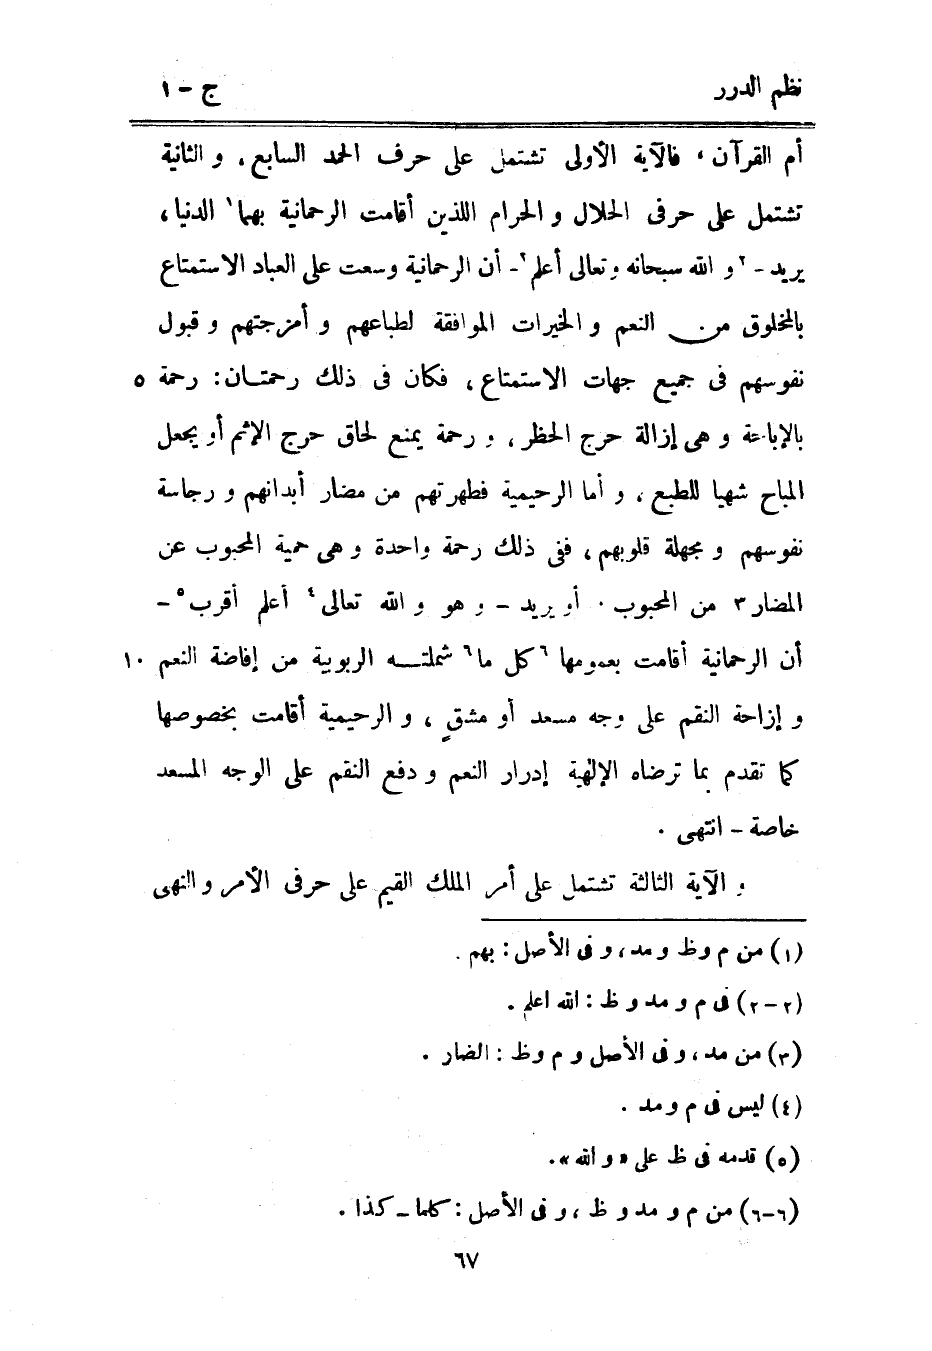 نظم الدرر ج - ١
أم القرآن، فالآية الأولى تشتمل على حرف الحمد السابع، و الثانية
تشتمل على حرفى الحلال و الحرام اللذين أقامت الرحمانية بهما١ الدنيا،
يريد - ٢و الله سبحانه وتعالى أعلم٢- أن الرحمانية وسعت على العباد الاستمتاع
بالمخلوق من النعم و الخيرات الموافقة لطباعهم و أمزجتهم و قبول
نفوسهم فى جميع جهات الاستمتاع، فكان فى ذلك رحمتان: رحمة ٥
بالإباحة و هى إزالة حرج الحظر، و رحمة يمنع لحاق حرج الإثم أو يجعل
المباح شهيا للطبع، و أما الرحيمية فطهرتهم من مضار أبدانهم و رجاسة
نفوسهم و مجهلة قلوبهم، ففى ذلك رحمة واحدة و هى حمية المحبوب عن
المضار٣ من المحبوب . أو يريد - و هو و الله تعالى٤ أعلم أقرب٥ -
أن الرحمانية أقامت بعمومها ٦كل ما٦ شملته الربوبية من إفاضة النعم ١٠
و إزاحة النقم على وجه مسعد أو مشق، و الرحيمية أقامت بخصوصها
كما تقدم بما ترضاه الإلهية إدرار النعم و دفع النقم على الوجه المسعد
خاصة - انتهى .
و الآية الثالثة تشتمل على أمر الملك القيم على حرفى الأمر و النهى
(١) من م و ظ و مد، و فى الأصل: بهم .
(٢-٢) فى م و مد و ظ: الله اعلم .
(٣) من مد، و فى الأصل و م و ظ: الضار .
(٤) ليس فى م و مد .
(٥) قدمه فى ظ على «و الله».
(٦-٦) من م و مد و ظ، و فى الأصل: كلما - كذا .
٦٧